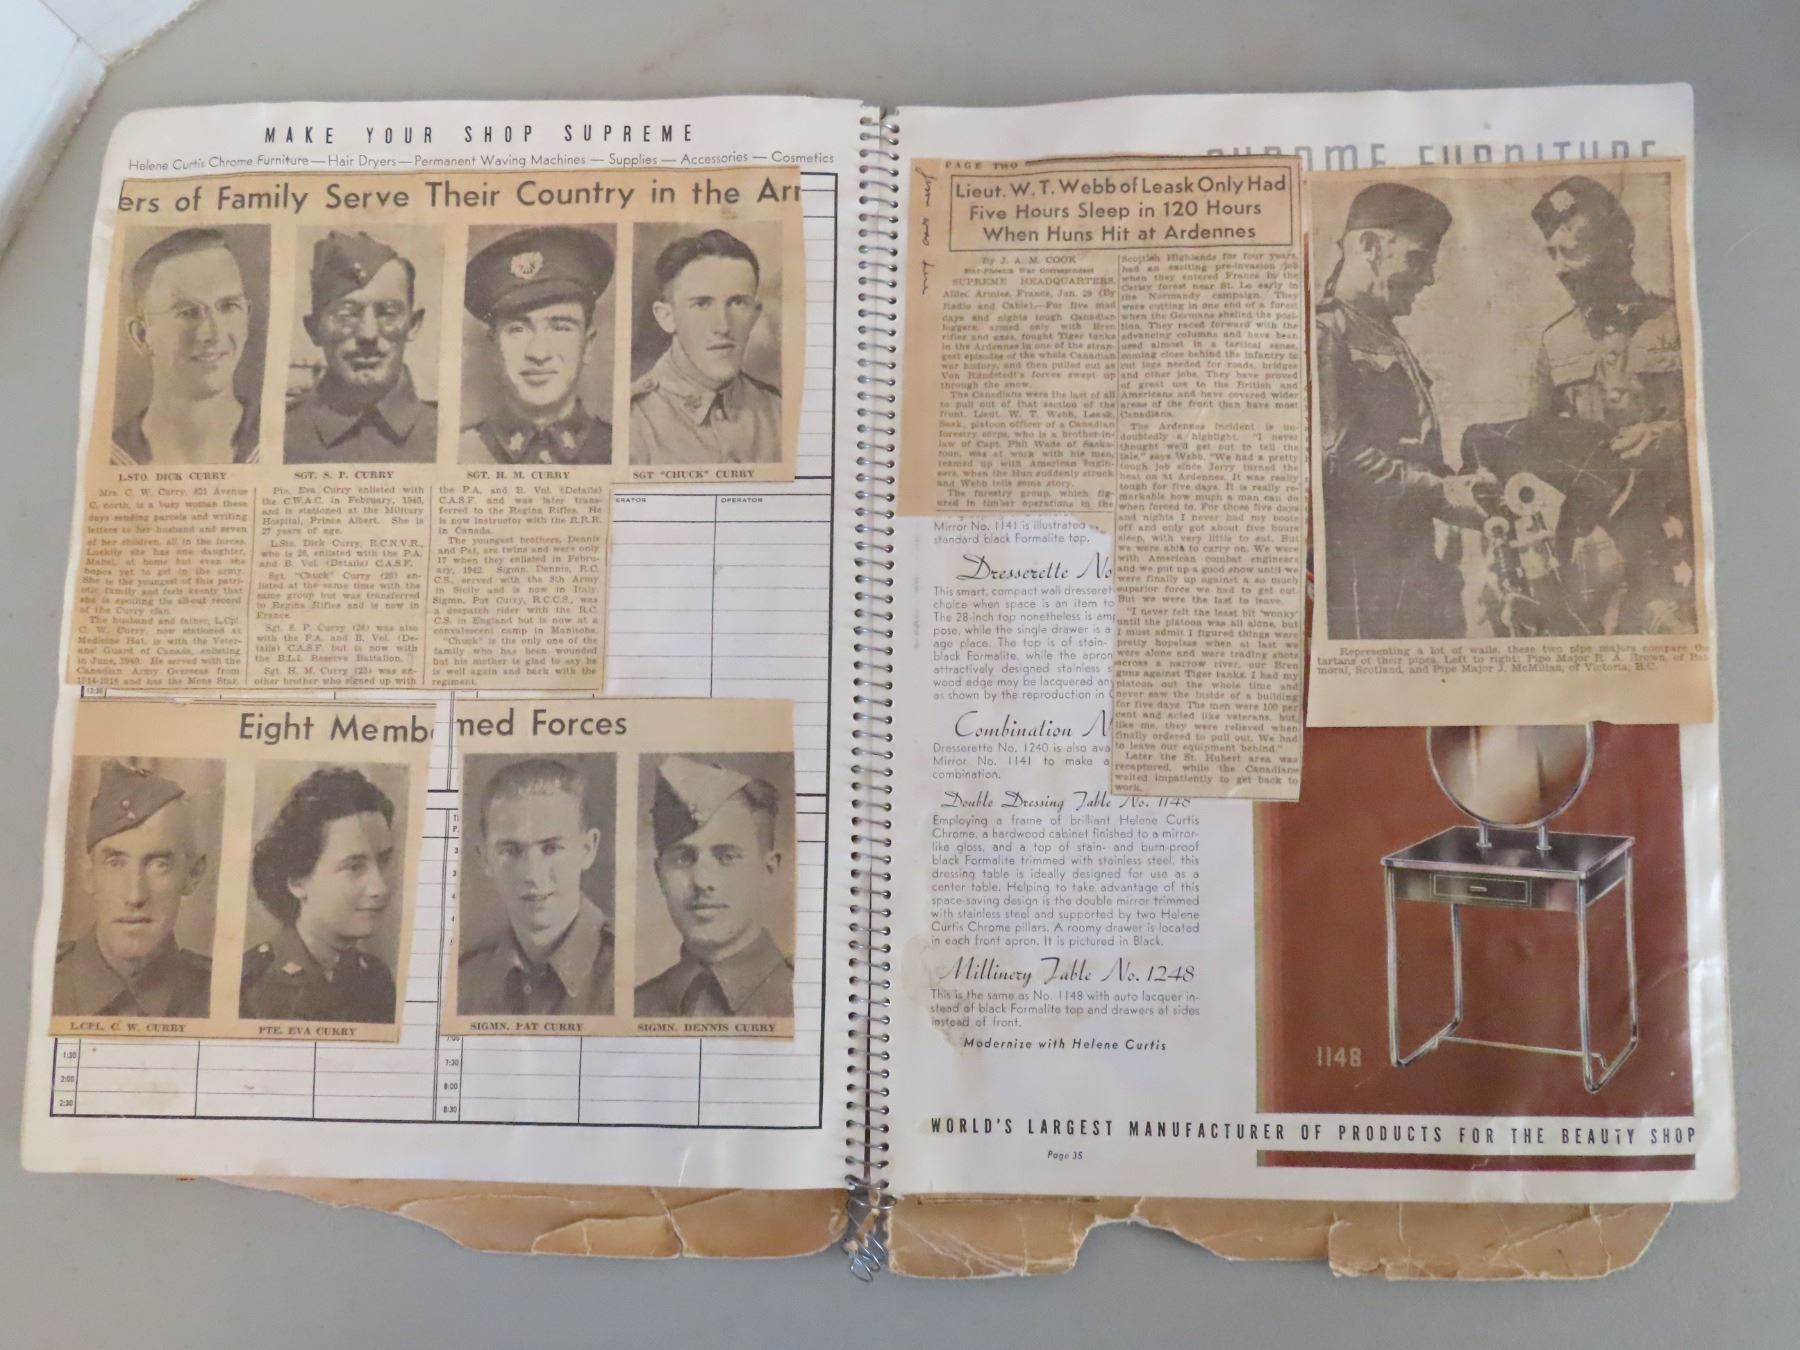 MAKE YOUR SHOP SUPREME
Helene Curtis Chrome Furniture — Hair Dryers — Permanent Waving Machines — Supplies — Accessories — Cosmetics
ers of Family Serve Their Country in the Ar
LSTO. DICK CURRY
SGT. S. P. CURRY
SGT. H. M. CURRY
SGT "CHUCK" CURRY
Mrs. C. W. Curry, 831 Avenue
C. north, is a busy woman these
days sending parcels and writing
letters to her husband and seven
of her children, all in the forces.
Luckily she has one daughter,
Mabel, at home but even she
hopes yet to get in the army.
She is the youngest of this patri-
otic family and feels keenly that
she is spoiling the all-out record
of the Curry clan.
The husband and father, L.Cpl.
C. W. Curry, now stationed at
Medicine Hat, is with the Veter-
ans' Guard of Canada, enlisting
in June, 1940. He served with the
Canadian Army Overseas from
1914-1918 and has the Mons Star.
Pte. Eva Curry enlisted with
the C.W.A.C. in February, 1943,
and is stationed at the Military
Hospital, Prince Albert. She is
27 years of age.
LSto. Dick Curry, R.C.N.V.R.,
who is 26, enlisted with the P.A.
and B. Vol. (Details) C.A.S.F.
Sgt. "Chuck" Curry (25) en-
listed at the same time with the
same group but was transferred
to Regina Rifles and is now in
France.
Sgt. S. P. Curry (24) was also
with the P.A. and B. Vol. (De-
tails) C.A.S.F. but is now with
the B.L.I. Reserve Battalion.
Sgt. H. M. Curry (23) was an-
other brother who signed up with
the P.A. and B. Vol. (Details)
C.A.S.F. and was later trans-
ferred to the Regina Rifles. He
is now instructor with the R.R.R.
in Canada.
The youngest brothers, Dennis
and Pat, are twins and were only
17 when they enlisted in Febru-
ary, 1942. Sigmn. Dennis, R.C.
C.S., served with the 8th Army
in Sicily and is now in Italy.
Sigmn. Pat Curry, R.C.C.S., was
a despatch rider with the R.C.
C.S. in England but is now at a
convalescent camp in Manitoba.
"Chuck" is the only one of the
family who has been wounded
but his mother is glad to say he
is well again and back with the
regiment.
ERATOR
OPERATOR
12:30
Eight Membe
med Forces
L.CPL. C. W. CURRY
PTE. EVA CURRY
SIGMN. PAT CURRY
SIGMN. DENNIS CURRY
1:30
2:00
2:30
7:00
7:30
8:00
8:30
CHROME FURNITURE
PAGE TWO
Lieut. W. T. Webb of Leask Only Had
Five Hours Sleep in 120 Hours
When Huns Hit at Ardennes
By J. A. M. COOK
Star-Phoenix War Correspondent
SUPREME HEADQUARTERS,
Allied Armies, France, Jan. 29 (By
Radio and Cable).—For five mad
days and nights tough Canadian
loggers, armed only with Bren
rifles and axes, fought Tiger tanks
in the Ardennes in one of the stran-
gest episodes of the whole Canadian
war history, and then pulled out as
Von Rundstedt's forces swept up
through the snow.
The Canadians were the last of all
to pull out of that section of the
front. Lieut. W. T. Webb, Leask,
Sask., platoon officer of a Canadian
forestry corps, who is a brother-in-
law of Capt. Phil Wade of Saska-
toon, was at work with his men,
teamed up with American engin-
eers, when the Hun suddenly struck
and Webb tells some story.
The forestry group, which fig-
ured in timber operations in the
Scottish Highlands for four years,
had an exciting pre-invasion job
when they entered France in the
Cerisy forest near St. Lo early in
the Normandy campaign. They
were cutting in one end of a forest
when the Germans shelled the posi-
tion. They raced forward with the
advancing columns and have been
used almost in a tactical sense,
coming close behind the infantry to
cut logs needed for roads, bridges
and other jobs. They have proved
of great use to the British and
Americans and have covered wider
areas of the front than have most
Canadians.
The Ardennes incident is un-
doubtedly a highlight. "I never
thought we'd get out to tell the
tale," says Webb. "We had a pretty
tough job since Jerry turned the
heat on at Ardennes. It was really
tough for five days. It is really re-
markable how much a man can do
when forced to. For those five days
and nights I never had my boots
off and only got about five hours
sleep, with very little to eat. But
we were able to carry on. We were
with American combat engineers
and we put up a good show until we
were finally up against a so much
superior force we had to get out.
But we were the last to leave.
"I never felt the least bit 'wonky'
until the platoon was all alone, but
I must admit I figured things were
pretty hopeless when at last we
were alone and were trading shots
across a narrow river, our Bren
guns against Tiger tanks. I had my
platoon out the whole time and
never saw the inside of a building
for five days. The men were 100 per
cent and acted like veterans, but,
like me, they were relieved when
finally ordered to pull out. We had
to leave our equipment behind."
Later the St. Hubert area was
recaptured, while the Canadians
waited impatiently to get back to
work.
Representing a lot of wails, these two pipe majors compare the
tartans of their pipes. Left to right: Pipe Major R. A. Brown, of Bal-
moral, Scotland, and Pipe Major J. McMillan, of Victoria, B.C.
Mirror No. 1141 is illustrated
standard black Formalite top.
Dresserette No
This smart, compact wall dresseret
choice when space is an item to
The 28-inch top nonetheless is amp
pose, while the single drawer is a
age place. The top is of stain-
black Formalite, while the apron
attractively designed stainless s
wood edge may be lacquered an
as shown by the reproduction in
Combination N
Dresserette No. 1240 is also ava
Mirror No. 1141 to make a
combination.
Double Dressing Table No. 1148
Employing a frame of brilliant Helene Curtis
Chrome, a hardwood cabinet finished to a mirror-
like gloss, and a top of stain- and burn-proof
black Formalite trimmed with stainless steel, this
dressing table is ideally designed for use as a
center table. Helping to take advantage of this
space-saving design is the double mirror trimmed
with stainless steel and supported by two Helene
Curtis Chrome pillars. A roomy drawer is located
in each front apron. It is pictured in Black.
Millinery Table No. 1248
This is the same as No. 1148 with auto lacquer in-
stead of black Formalite top and drawers at sides
instead of front.
Modernize with Helene Curtis
1148
WORLD'S LARGEST MANUFACTURER OF PRODUCTS FOR THE BEAUTY SHOP
Page 35